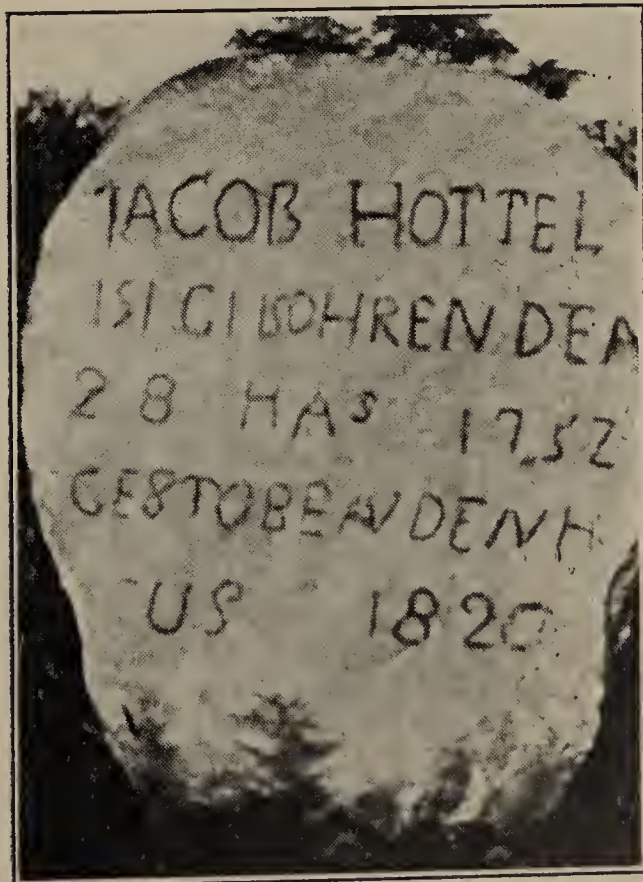 JACOB HOTTEL
ISI GIBOHREN DEN
28 HAS 1732
GESTOBEN DEN H
US 1820